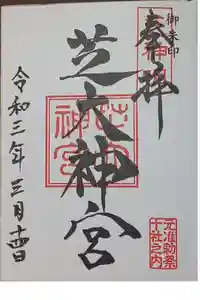 御朱印
奉拝
芝大神宮
令和三年三月十四日
芝大神宮
元准勅祭
十社之内